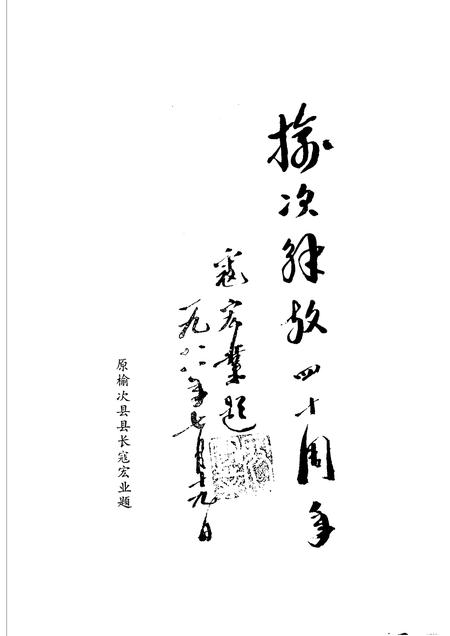 榆次解放四十周年
寇宏業题
一九八八年七月十九日
原榆次县县长寇宏业题